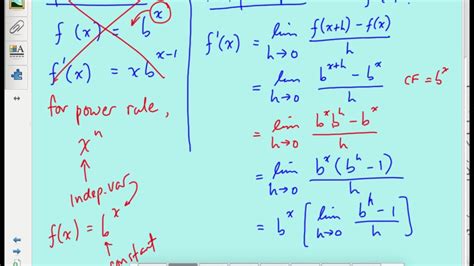 f(x) = b^x
f'(x) = xb^{x-1}
for power rule,
x^n
indep.var
f(x) = b^x
constant
f'(x) = lim_{h→0} \frac{f(x+h) - f(x)}{h}
= lim_{h→0} \frac{b^{x+h} - b^x}{h} CF = b^x
= lim_{h→0} \frac{b^x b^h - b^x}{h}
= lim_{h→0} \frac{b^x (b^h - 1)}{h}
= b^x [ lim_{h→0} \frac{b^h - 1}{h} ]